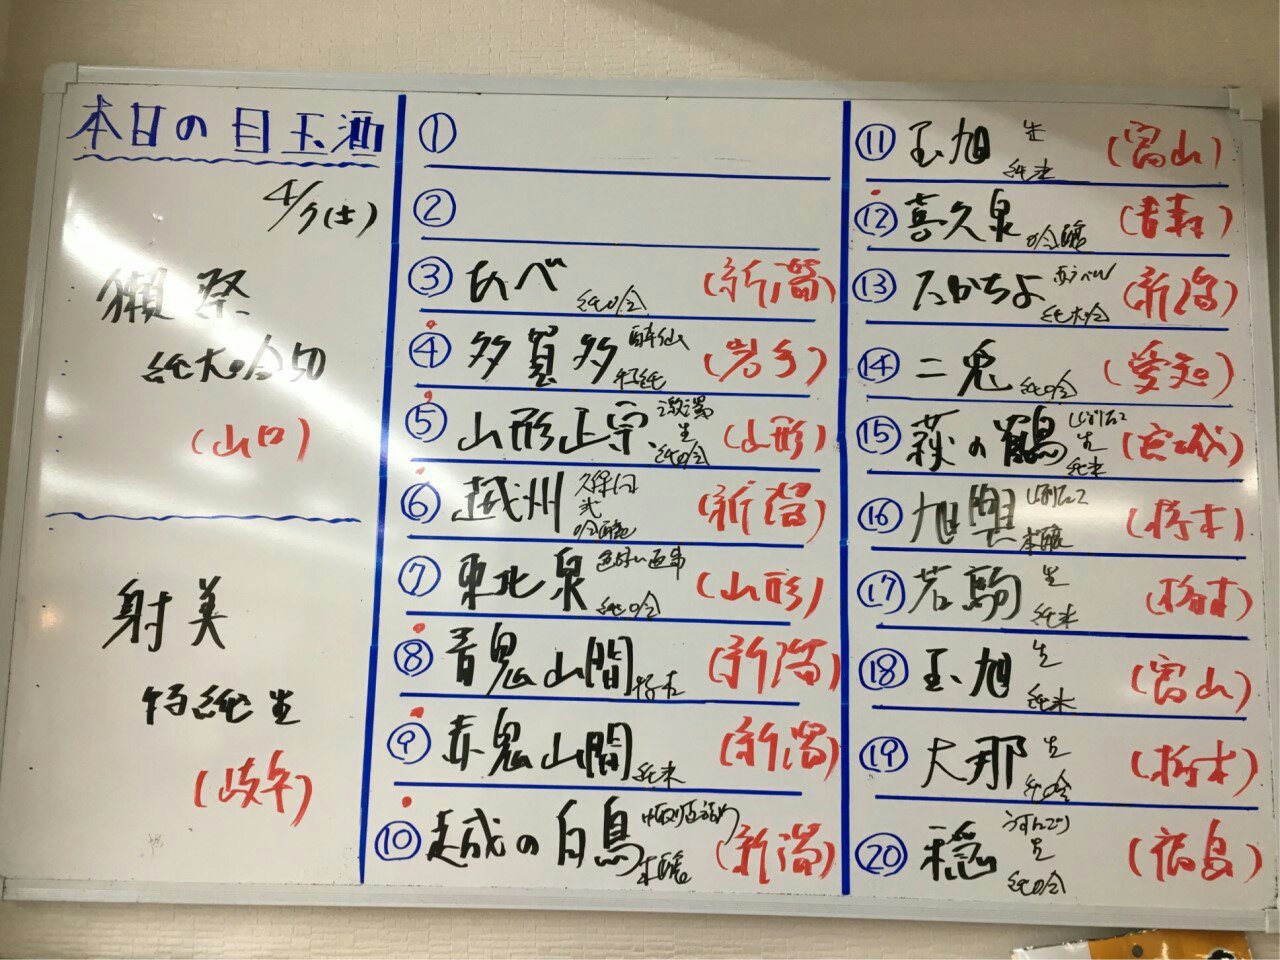 本日の目玉酒
4/7(土)
獺祭
純大吟50
(山口)
射美
特純生
(岐阜)
①
②
③ あべ 純吟 (新潟)
④ 多賀多 酔仙 特純 (岩手)
⑤ 山形正宗 生 純吟 (山形)
⑥ 越州 久保田 弐 吟醸 (新潟)
⑦ 東北泉 純吟 (山形)
⑧ 青鬼山間 特本 (新潟)
⑨ 赤鬼山間 純米 (新潟)
⑩ 越成の白鳥 中取り直詰め 本醸 (新潟)
⑪ 玉旭 生 純米 (富山)
⑫ 喜久泉 吟醸 (青森)
⑬ たかちよ 赤ラベル 純大吟 (新潟)
⑭ 二兎 純吟 (愛知)
⑮ 萩の鶴 しぼりたて 生 純米 (宮城)
⑯ 旭興 しぼりたて 本醸 (栃木)
⑰ 若駒 生 純米 (栃木)
⑱ 玉旭 生 純米 (富山)
⑲ 大那 生 純吟 (栃木)
⑳ 穏 うすにごり 生 純吟 (福島)